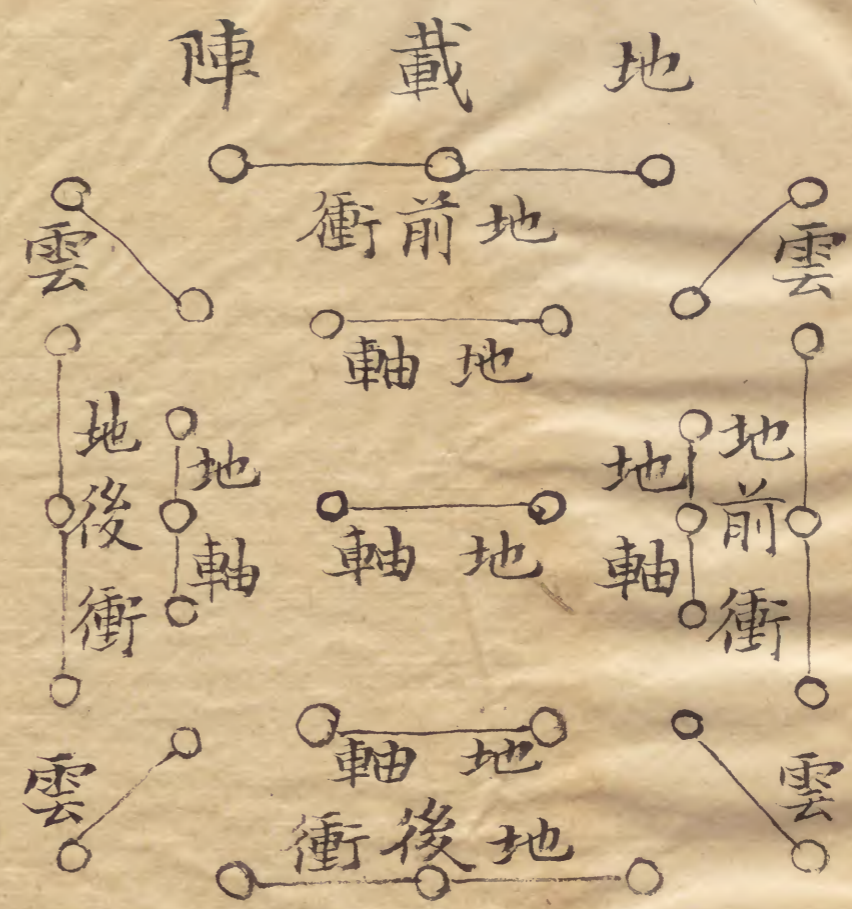 地載陣
地前衝
雲
雲
地軸
地前衝
地軸
地軸
地軸
地後衝
地軸
地後衝
雲
雲